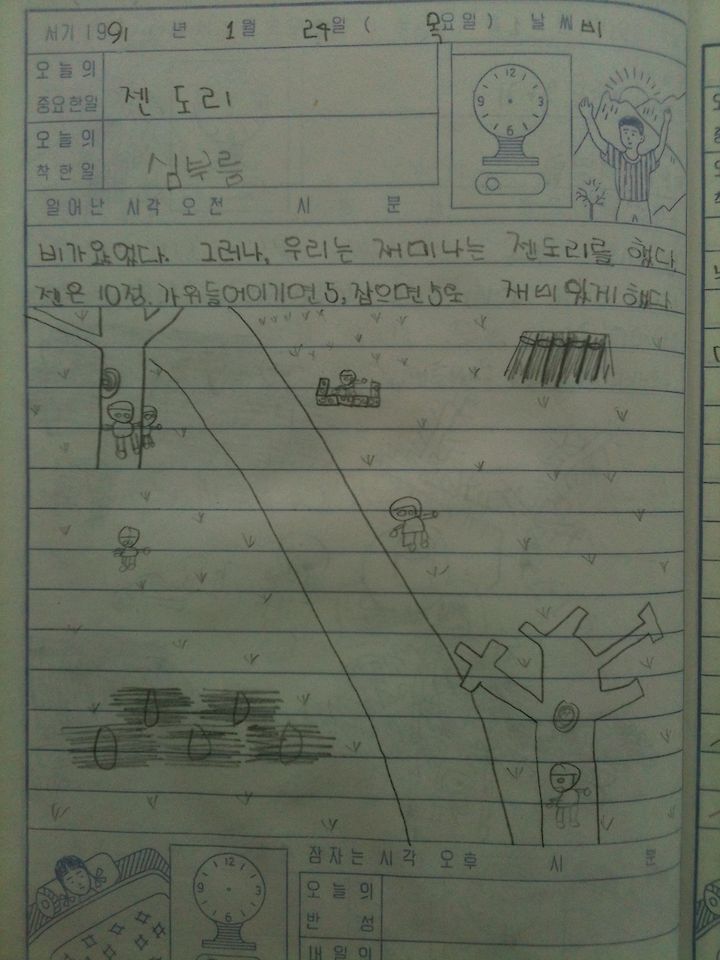 서기 1991 년 1월 24일 ( 목요일 ) 날씨 비
오늘의
중요한일 젠 도리
오늘의
착한일 심부름
일어난 시각 오전 시 분
12
9 3
6
비가 왔었다. 그러나, 우리는 재미나는 젠도리를 했다.
젠은 10점. 가위들어이기면 5, 잡으면 5로 재미 있게 했다
잠자는 시각 오후 시 분
12
9 3
6
오늘의
반성
내일의